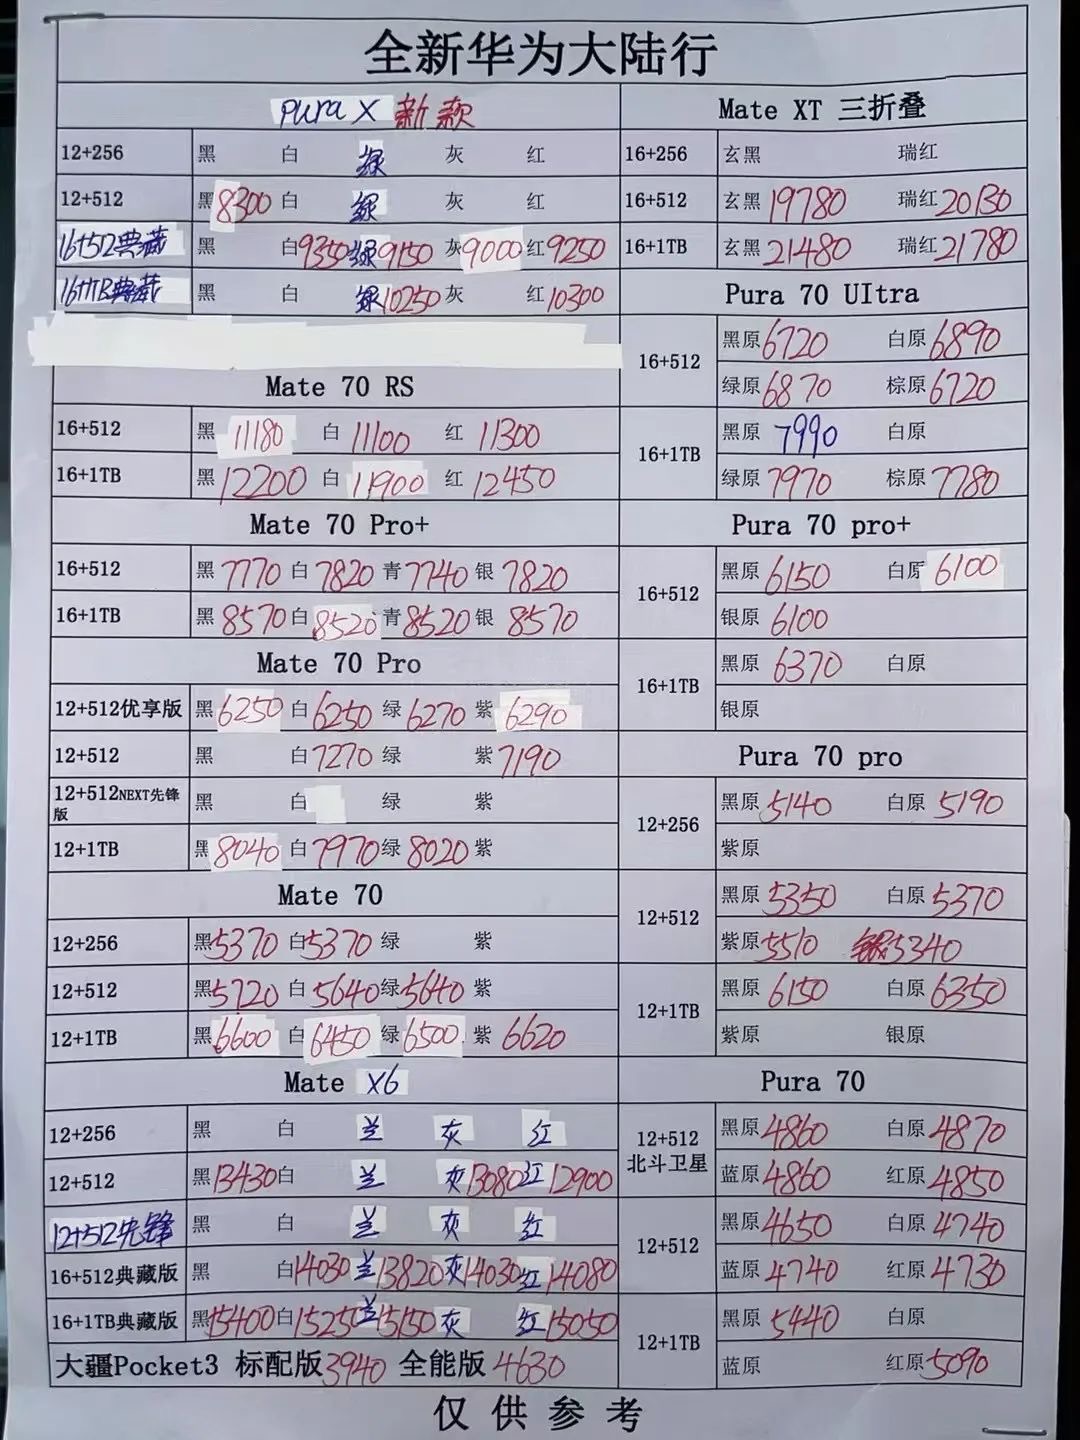 全新华为大陆行
pura X 新款
12+256 黑 白 绿 灰 红
12+512 黑8300 白 绿 灰 红
16+512典藏 黑 白9350 绿9150 灰9000 红9250
16+1TB典藏 黑 白 绿10250 灰 红10300
Mate 70 RS
16+512 黑 11180 白 11100 红 11300
16+1TB 黑 12200 白 11900 红 12450
Mate 70 Pro+
16+512 黑 7770 白 7820 青 7740 银 7820
16+1TB 黑 8570 白 8520 青 8520 银 8570
Mate 70 Pro
12+512优享版 黑 6250 白 6250 绿 6270 紫 6290
12+512 黑 白 7270 绿 紫 7190
12+512NEXT先锋版 黑 白 绿 紫
12+1TB 黑 8040 白 7970 绿 8020 紫
Mate 70
12+256 黑5370 白5370 绿 紫
12+512 黑5720 白 5640 绿5640 紫
12+1TB 黑6600 白 6450 绿 6500 紫 6620
Mate X6
12+256 黑 白 兰 灰 红
12+512 黑13430 白 兰 灰13080 红12900
12+512先锋 黑 白 兰 灰 红
16+512典藏版 黑 白14030 兰13820 灰14030 红14080
16+1TB典藏版 黑15400 白15250 兰15150 灰 红15050
大疆Pocket3 标配版3940 全能版4630
Mate XT 三折叠
16+256 玄黑 瑞红
16+512 玄黑 19780 瑞红20130
16+1TB 玄黑21480 瑞红21780
Pura 70 UItra
16+512 黑原6720 白原6890
绿原6870 棕原6720
16+1TB 黑原 7990 白原
绿原 7970 棕原7780
Pura 70 pro+
16+512 黑原 6150 白原 6100
银原 6100
16+1TB 黑原 6370 白原
银原
Pura 70 pro
12+256 黑原 5140 白原 5190
紫原
12+512 黑原 5350 白原 5370
紫原5510 银5340
12+1TB 黑原 6150 白原 6350
紫原 银原
Pura 70
12+512北斗卫星 黑原4860 白原4870
蓝原4860 红原4850
12+512 黑原4650 白原4740
蓝原4740 红原4730
12+1TB 黑原 5440 白原
蓝原 红原5090
仅供参考